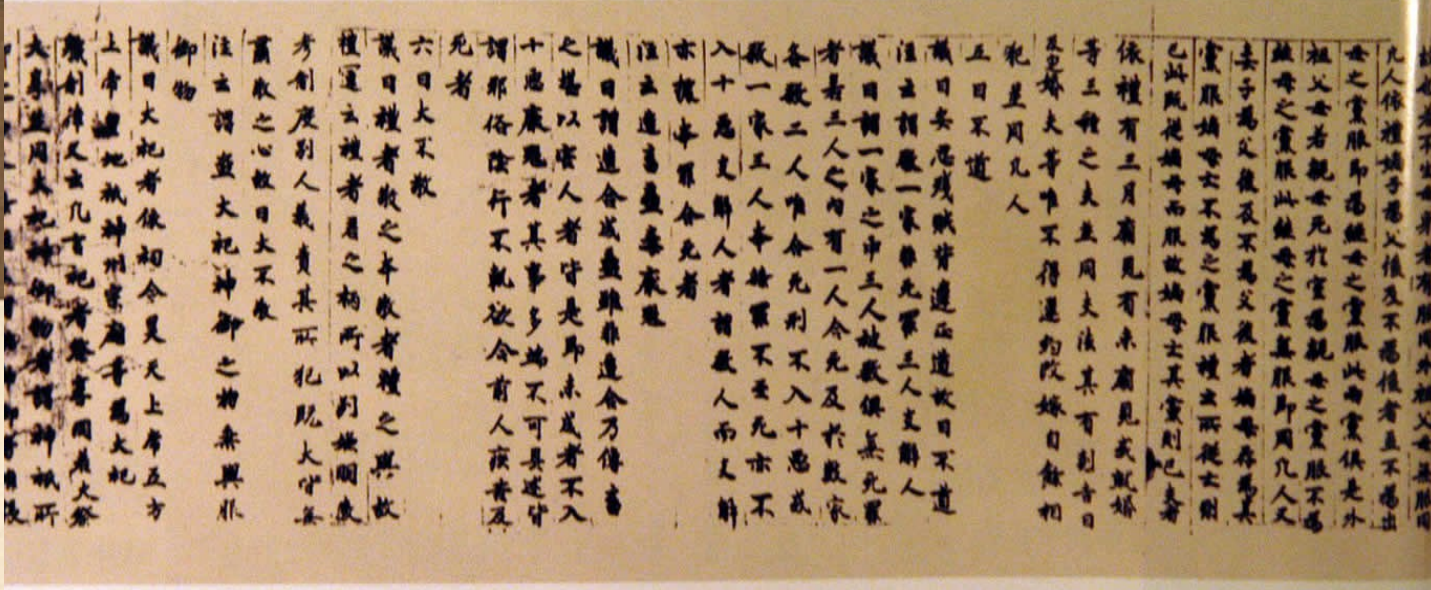 者有服同外祖父母無服同
凡人依禮嫡子為父後及不為後者並不為出
母之黨服即為繼母之黨服此兩黨俱是外
祖父母若親母死於室為親母之黨服不為
繼母之黨服此繼母之黨無服即同凡人又
妾子為父後及不為父後者嫡母存為其
黨服嫡母亡不為之黨服禮云所從亡則
已此既從嫡母而服故嫡母亡其黨則已夫者
依禮有三月廟見有未廟見或就婚
等三種之夫並同夫法其有剋吉日
及定婚夫等唯不得違約改嫁自餘相
犯並同凡人
五曰不道
議曰安忍殘賊背違正道故曰不道
注云謂殺一家非死罪三人支解人
議曰謂一家之中三人被殺俱無死罪
者若三人之內有一人合死及於數家
各殺二人唯合死刑不入十惡或
殺一家三人本條罪不至死亦不
入十惡支解人者謂殺人而支解
亦據本罪合死者
注云造畜蠱毒厭魅
議曰謂造合成蠱雖非造合乃傳畜
之堪以害人者皆是即未成者不入
十惡厭魅者其事多端不可具述皆
謂邪俗陰行不軌欲令前人疾苦及
死者
六曰大不敬
議曰禮者敬之本敬者禮之輿故
禮運云禮者君之柄所以別嫌明微
考制度別人義責其所犯既大皆無
肅敬之心故曰大不敬
注云謂盜大祀神御之物乘輿服
御物
議曰大祀者依祠令昊天上帝五方
上帝皇地祇神州宗廟等為大祀
職制律又云凡言祀者祭享同若大祭
大享並同大祀神御物者謂神祇所